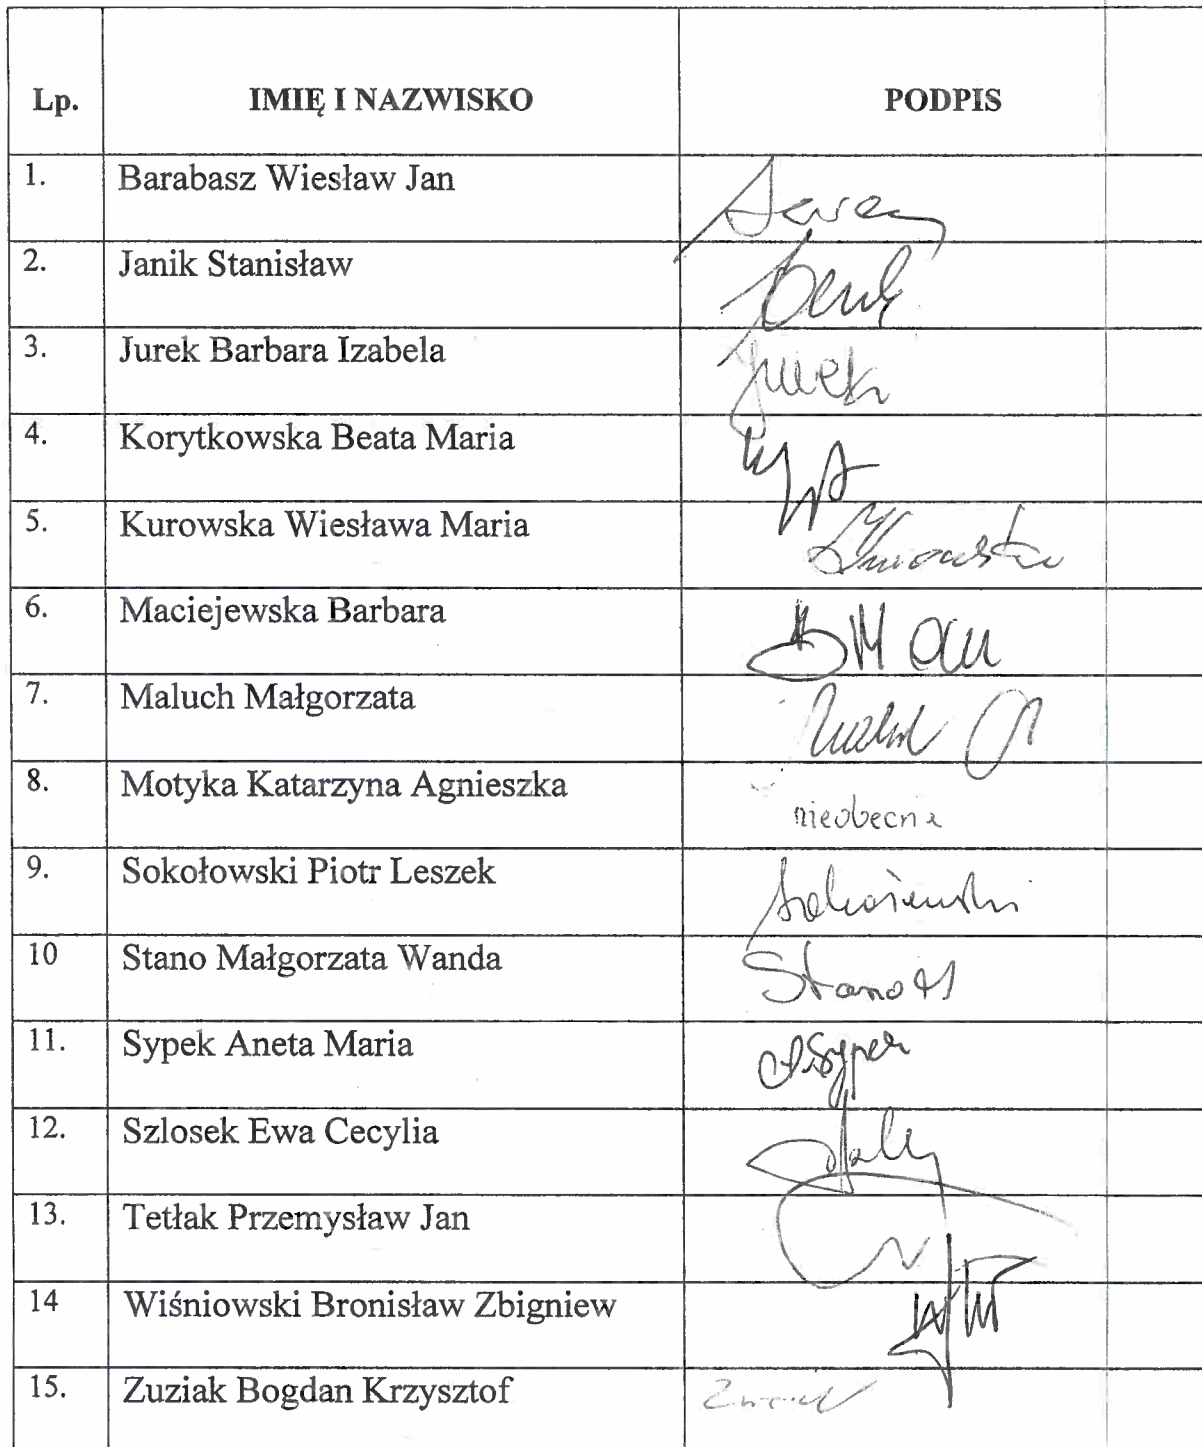 Lp. IMIĘ I NAZWISKO PODPIS
1. Barabasz Wiesław Jan
2. Janik Stanisław
3. Jurek Barbara Izabela Jurek
4. Korytkowska Beata Maria
5. Kurowska Wiesława Maria
6. Maciejewska Barbara
7. Maluch Małgorzata
8. Motyka Katarzyna Agnieszka nieobecna
9. Sokołowski Piotr Leszek
10 Stano Małgorzata Wanda Stano M
11. Sypek Aneta Maria ASypek
12. Szlosek Ewa Cecylia
13. Tetłak Przemysław Jan
14 Wiśniowski Bronisław Zbigniew
15. Zuziak Bogdan Krzysztof